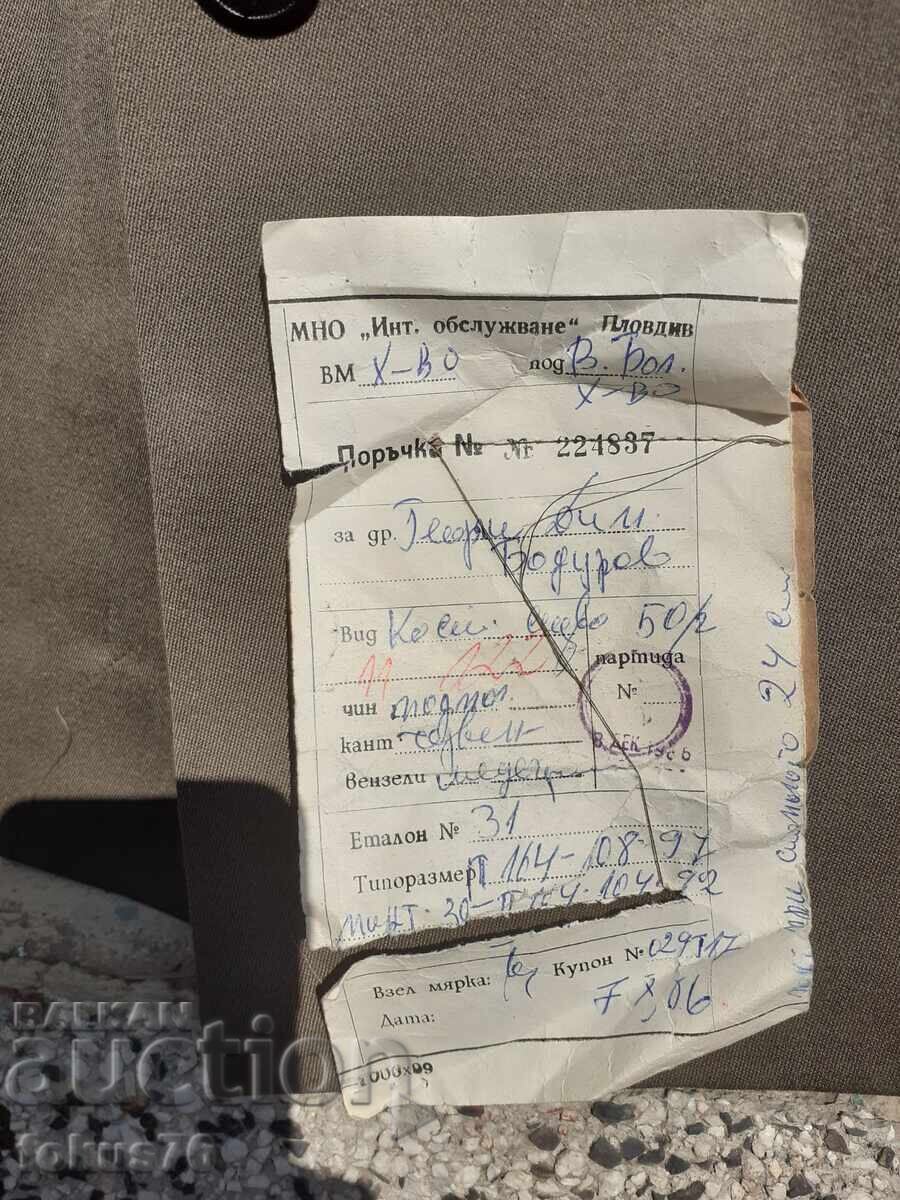 МНО „Инт. обслужване“ Пловдив
ВМ Х-ВО под В. Бол.
Х-ВО
Поръчка № № 224837
за др. Георги Дим.
Бодуров
Вид Кост. 50/2
11 122
партида
чин подпол. №
кант червен
8 ДЕК 1986
вензели медец.
Еталон № 31
Типоразмер П 164-108-97
30-П 104-92
при 24 см
Взел мярка: Купон № 029
Дата: 7 X 86
1000х99
BALKAN
auction
fokus76